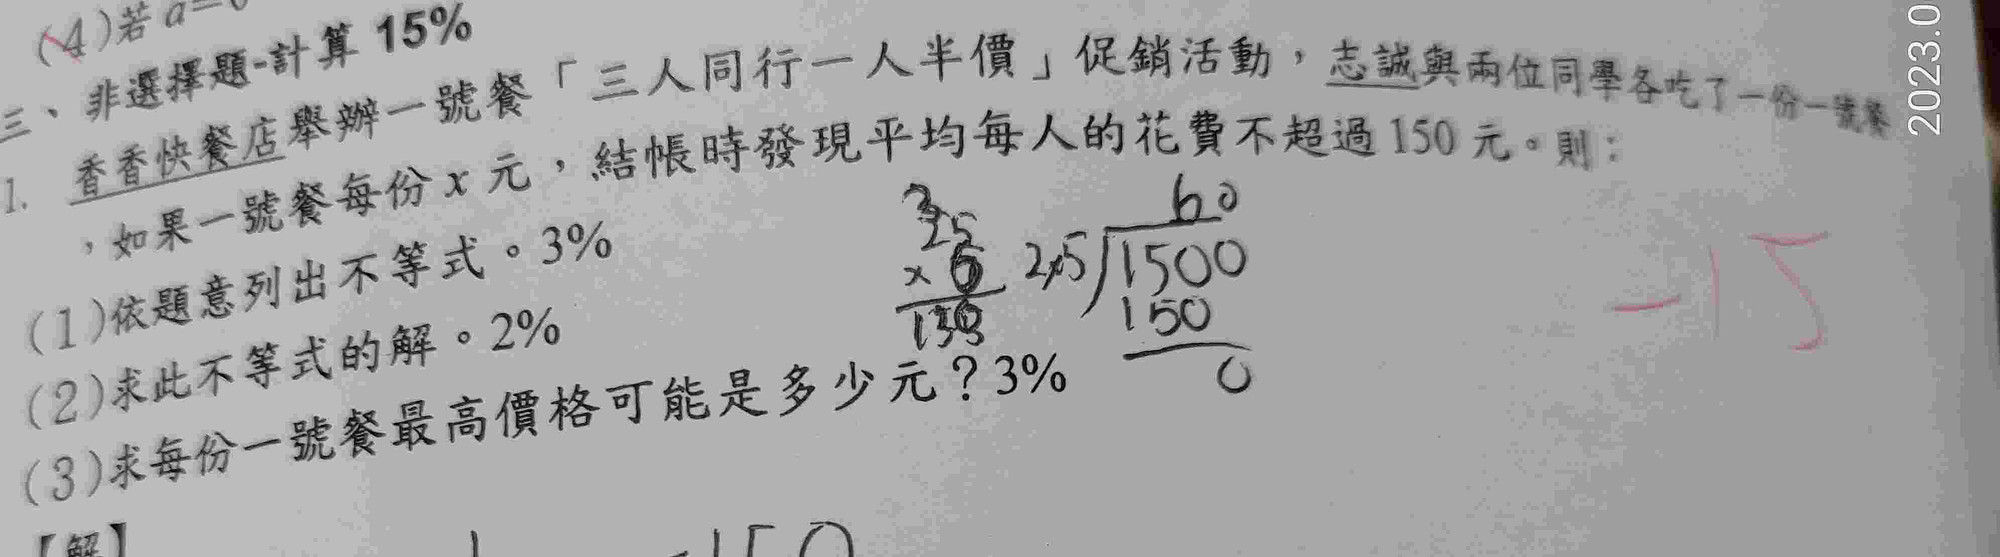 (4)若a=
三、非選擇題-計算 15%
1. 香香快餐店舉辦一號餐「三人同行一人半價」促銷活動，志誠與兩位同學各吃了一份一號餐
，如果一號餐每份 x 元，結帳時發現平均每人的花費不超過 150 元。則：
(1)依題意列出不等式。3%
(2)求此不等式的解。2%
(3)求每份一號餐最高價格可能是多少元？3%
【解】
25
× 6
60
1500
150
0
-15
150
2023.0